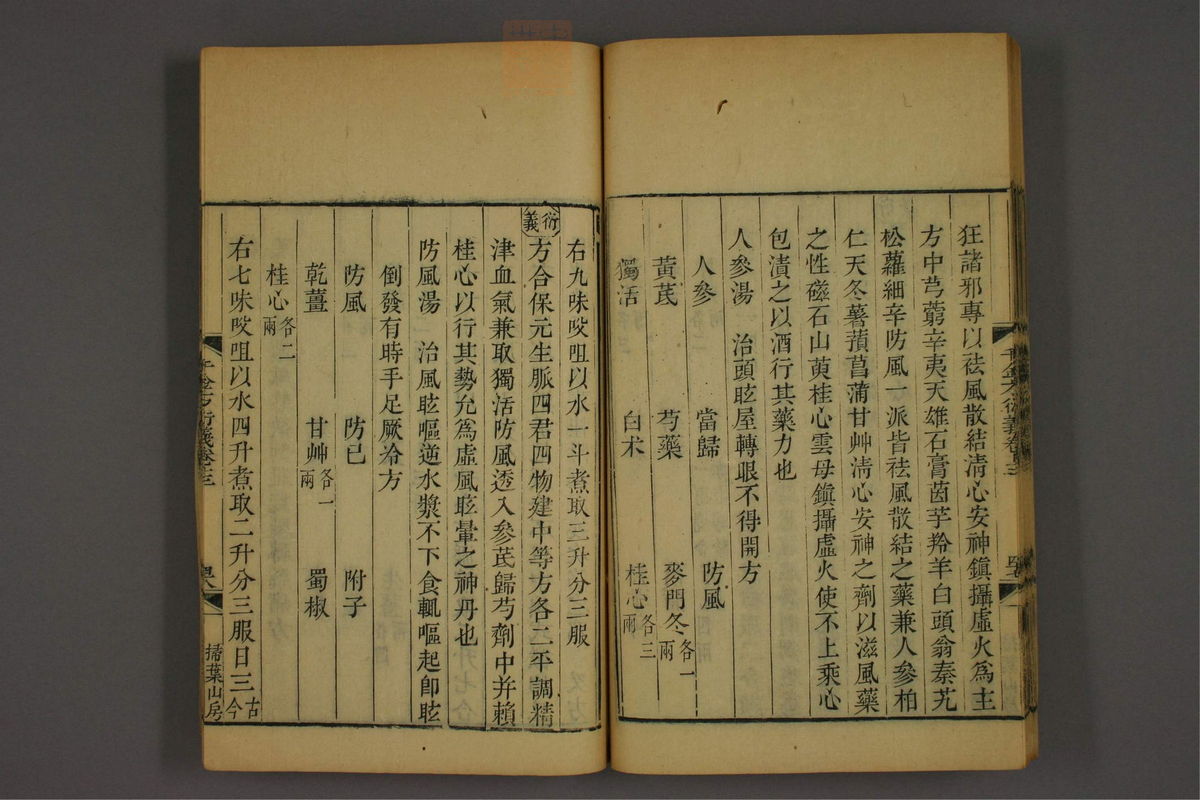 狂諸邪專以祛風散結淸心安神鎭攝虛火爲主
方中芎藭辛夷天雄石膏茵芋羚羊白頭翁秦艽
松蘿細辛防風一派皆祛風散結之藥兼人參柏
仁天冬薯蕷菖蒲甘艸淸心安神之劑以滋風藥
之性磁石山萸桂心雲母鎭攝虛火使不上乘心
包漬之以酒行其藥力也
人參湯 治頭眩屋轉眼不得開方
人參 當歸 防風
黃芪 芍藥 麥門冬各一兩
獨活 白术 桂心各三兩
千金方衍義卷十三
右九味㕮咀以水一斗煮取三升分三服
衍義 方合保元生脈四君四物建中等方各二平調精
津血氣兼取獨活防風透入參芪歸芍劑中并賴
桂心以行其勢允爲虛風眩暈之神丹也
防風湯 治風眩嘔逆水漿不下食輒嘔起卽眩
倒發有時手足厥冷方
防風 防己 附子
乾薑 甘艸各一兩 蜀椒
桂心各二兩
右七味㕮咀以水四升煮取二升分三服日三古今
千金方衍義卷十三
掃葉山房